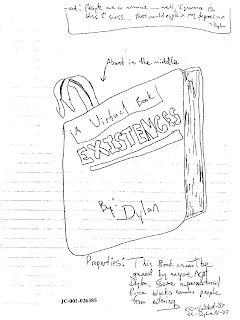 People are so unaware .... well, Ignorance is
bliss I guess.... that would explain my depression
About in the middle
A Virtual Book
EXISTENCES
By:
Dylan
Properties: This Book cannot be
opened by anyone except
Dylan, some supernatural
force blocks common people
from entering
JC-001-026385